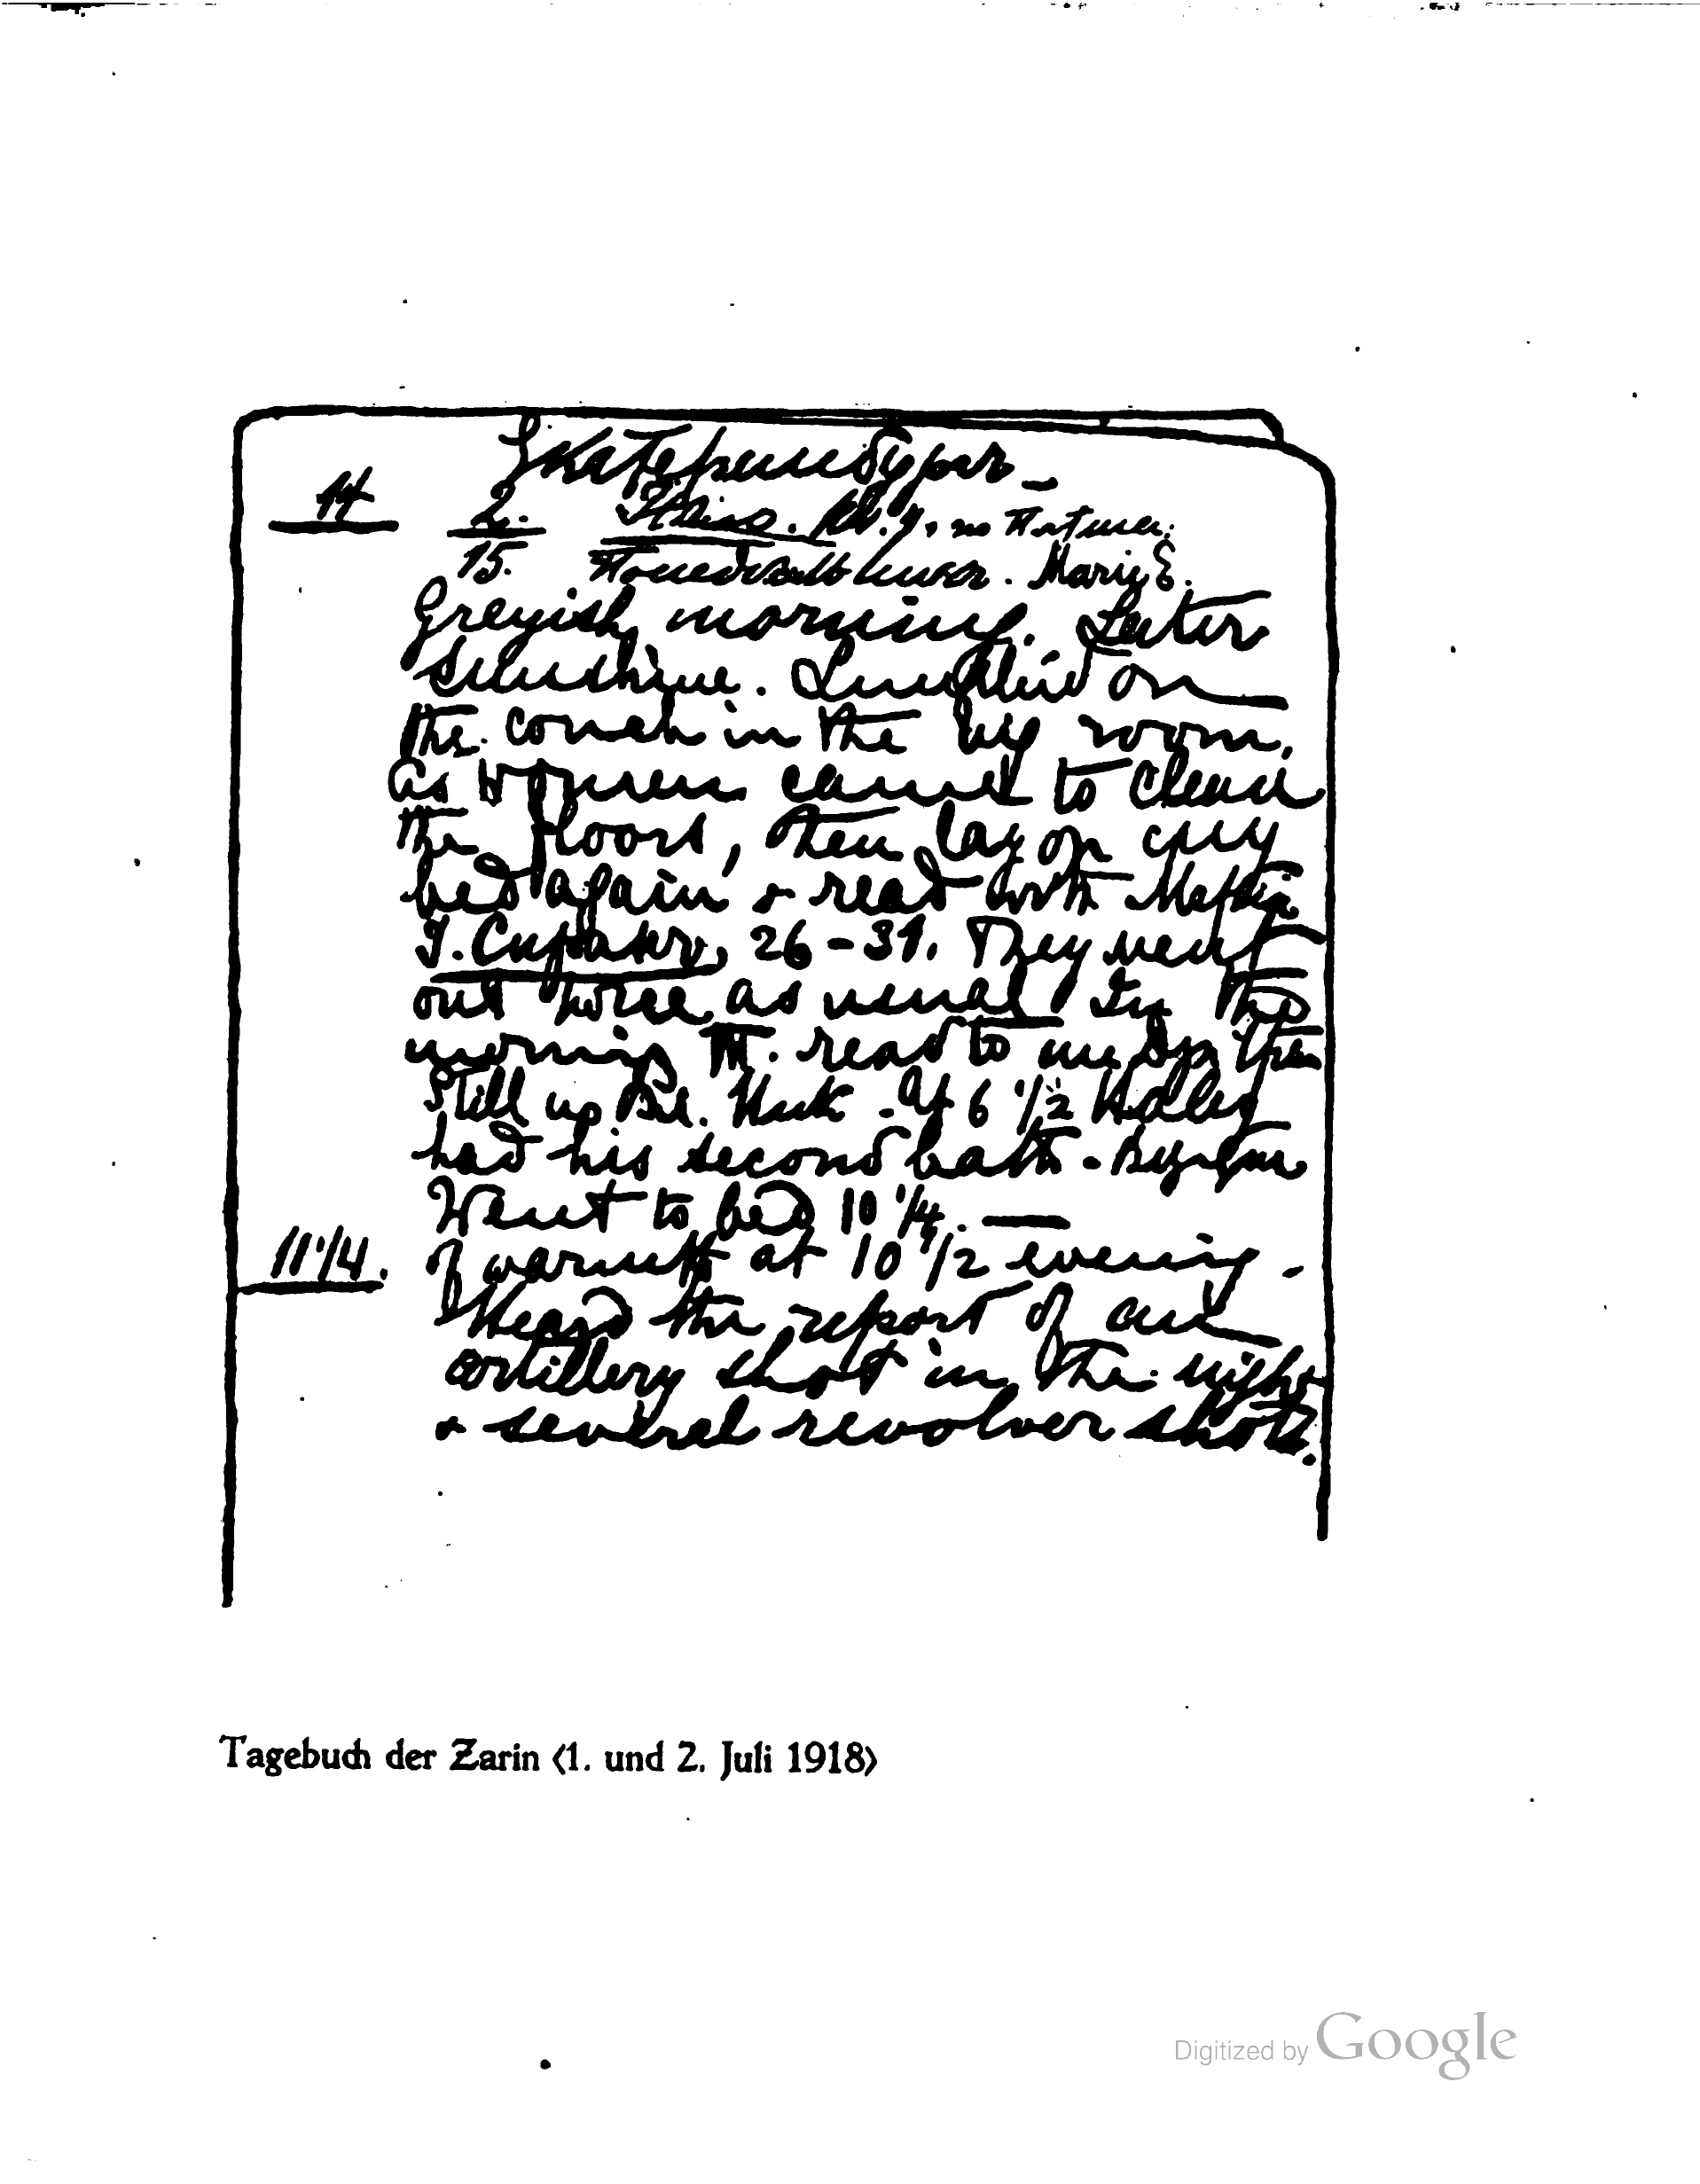 Екатеринбургъ –
11 2. Июль. по Пятидес.
15. Понедѣльникъ. Mary E.
Greyish morning. Later
sunshine. Lunched on
the couch in the big room,
as women came to clean
the floors, then lay on my
bed again & read with Maria
J. Сирахъ, 26–31. They went
out twice as usual. In the
morning T. read to me Sp.
Still no Vl. Nick. At 6 1/2
had his second bath – Bezique
Went to bed 10 1/4. —
11 1/4. of warmth at 10 1/2 evening –
Heard the report of an
artillery shot in the night
& several revolver shots.
Tagebuch der Zarin (1. und 2. Juli 1918)
Digitized by Google